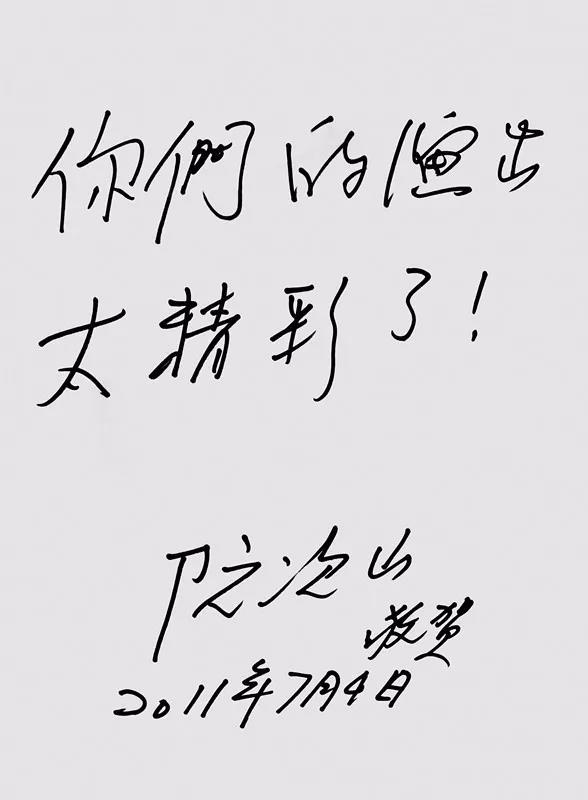 你們的演出
太精彩了!
阮次山
敬贺
2011年7月4日